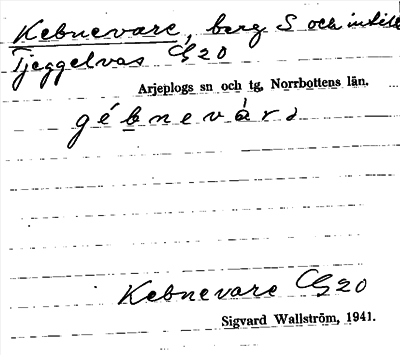 Kebnevare, berg S och intill
Tjeggelvas Cg 20
Arjeplogs sn och tg, Norrbottens län.
gébnevárə
Kebnevare Cg 20
Sigvard Wallström, 1941.